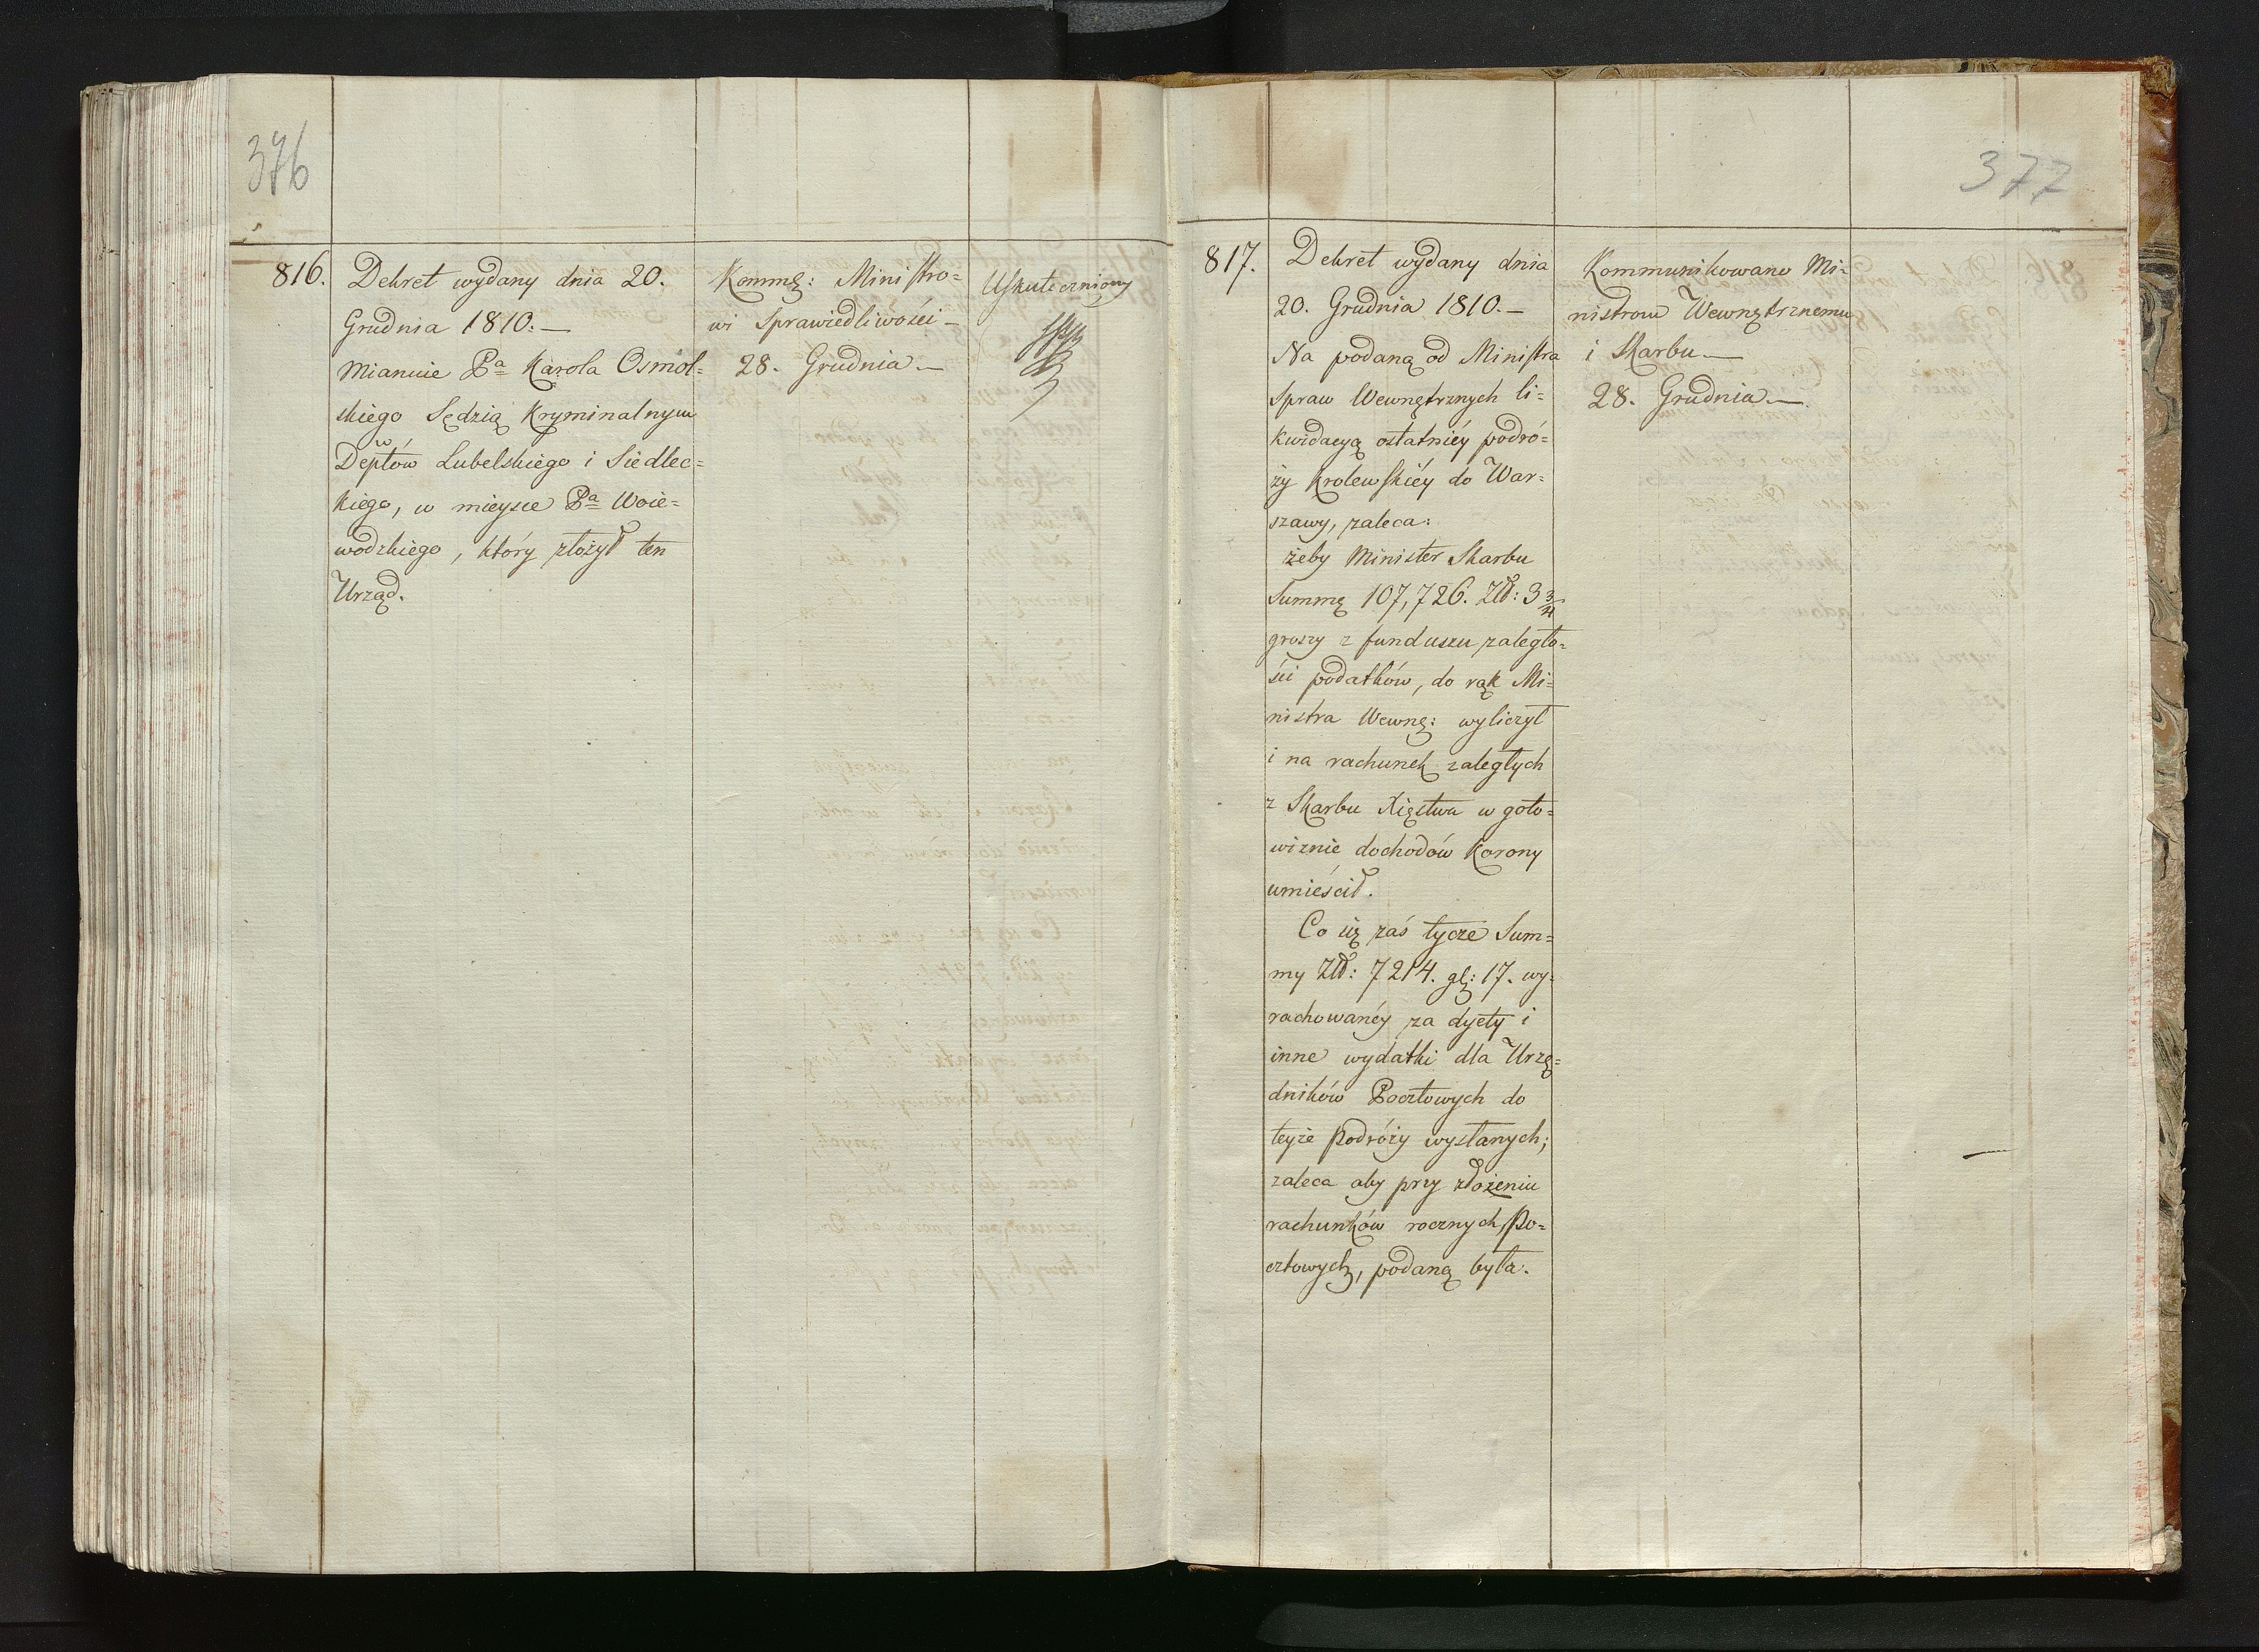 376
816.
Dekret wydany dnia 20.
Grudnia 1810. —
Mianuie Pa Karola Osmol=
skiego Sędzią Kryminalnym
Deptów Lubelskiego i Siedlec=
kiego, w mieysce Pa Woie=
wodzkiego, który złożył ten
Urząd.
Kommę: Ministro=
wi Sprawiedliwości —
28. Grudnia —
Uskuteczniony
377
817.
Dekret wydany dnia
20. Grudnia 1810. —
Na podaną od Ministra
Spraw Wewnętrznych li=
kwidacyą ostatniéy podró=
ży Krolewskiéy do War=
szawy, zaleca:
żeby Minister Skarbu
Summę 107,726. Zł: 3 3/4
groszy z funduszu zaległo=
ści podatków, do rąk Mi=
nistra Wewnę: wyliczył
i na rachunek zaległych
z Skarbu Xięstwa w goto=
wiznie dochodów Korony
umieścił.
Co się zaś tycze Sum=
my Zł: 7214. gl: 17. wy=
rachowanéy za dyety i
inne wydatki dla Urzę=
dników Pocztowych do
teyże Podróży wysłanych;
zaleca aby przy złożeniu
rachunków rocznych Po=
cztowych, podaną była.
Kommunikowano Mi=
nistrom Wewnętrznemu
i Skarbu —
28. Grudnia —